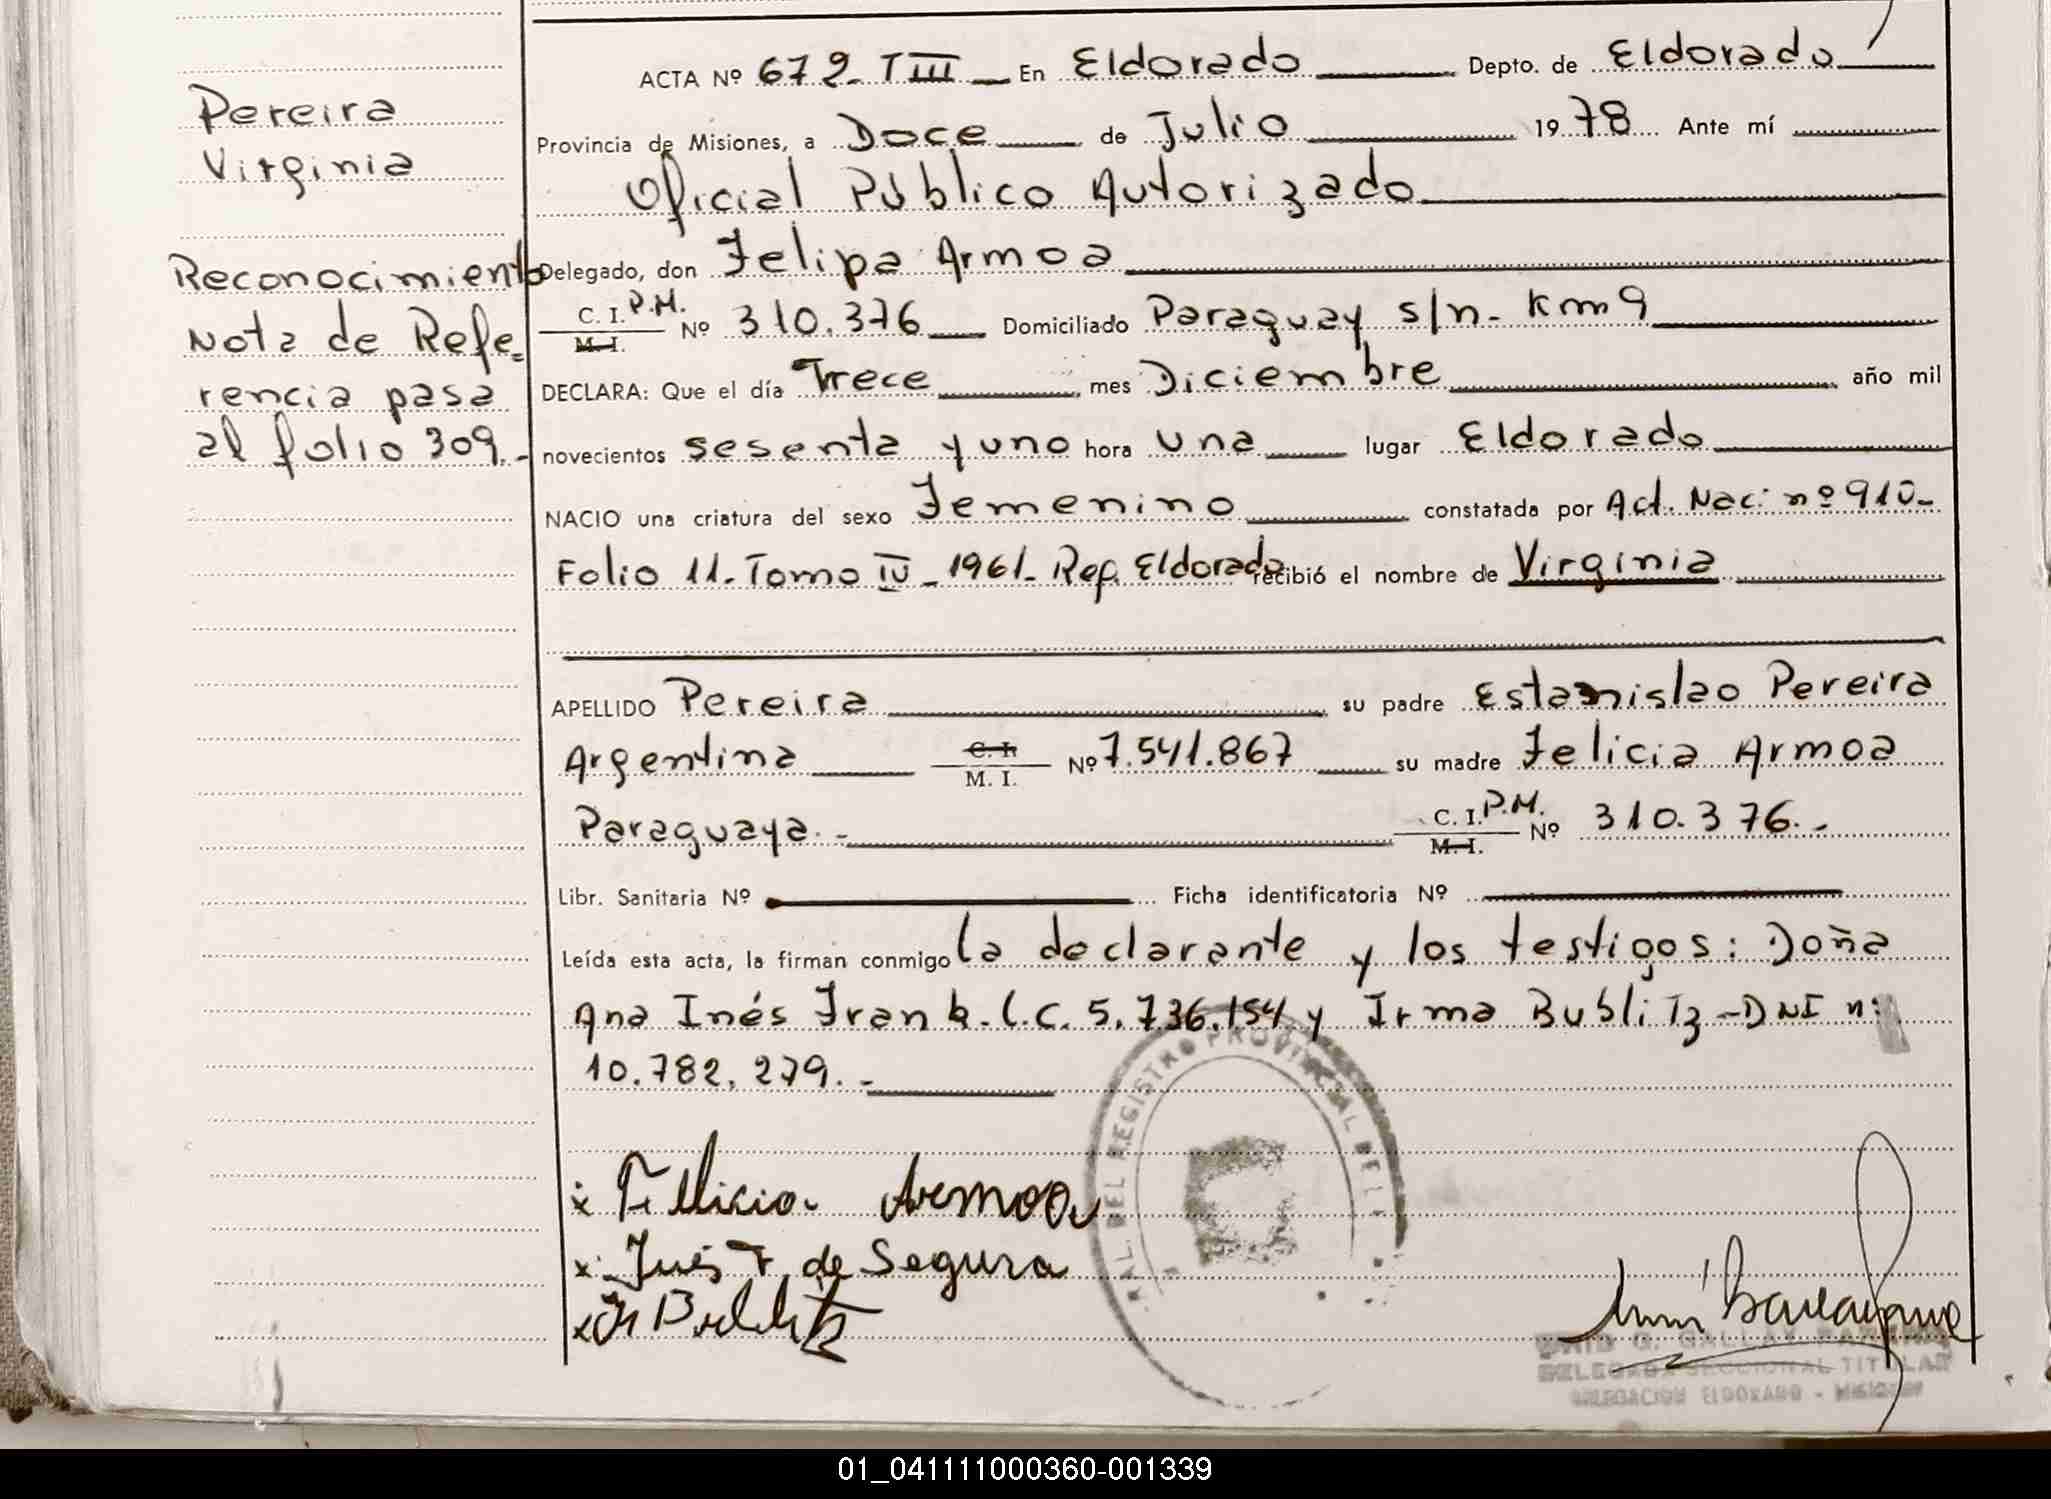 Pereira
Virginia
Reconocimiento
Nota de Refe=
rencia pasa
al folio 309.-
ACTA Nº 672- TIII En Eldorado Depto. de Eldorado
Provincia de Misiones, a Doce de Julio 1978 Ante mí
Oficial Público Autorizado
Delegado, don Felipa Armoa
C. I. P.M. M. I. Nº 310.376 Domiciliado Paraguay s/n- Km 9
DECLARA: Que el día Trece mes Diciembre año mil
novecientos sesenta y uno hora una lugar Eldorado
NACIO una criatura del sexo Femenino constatada por Act. Nac: nº 910-
Folio 11- Tomo IV - 1961- Rep. Eldorado recibió el nombre de Virginia
APELLIDO Pereira su padre Estanislao Pereira
Argentina C. I. M. I. Nº 7.541.867 su madre Felicia Armoa
Paraguaya.- C. I. P.M. M. I. Nº 310.376.-
Libr. Sanitaria Nº Ficha identificatoria Nº
Leída esta acta, la firman conmigo la declarante y los testigos: Doña
Ana Inés Frank. L.C. 5.736.154 y Irma Bublitz - DNI n:
10.782.279.-
DEL REGISTRO PROVINCIAL DE L
x Fellicia Armoa
x Inés F. de Segura
x I Bublitz
G. GALLA
DELEGADO SECCIONAL TITULAR
DELEGACION ELDORADO - MISIONES
01_041111000360-001339